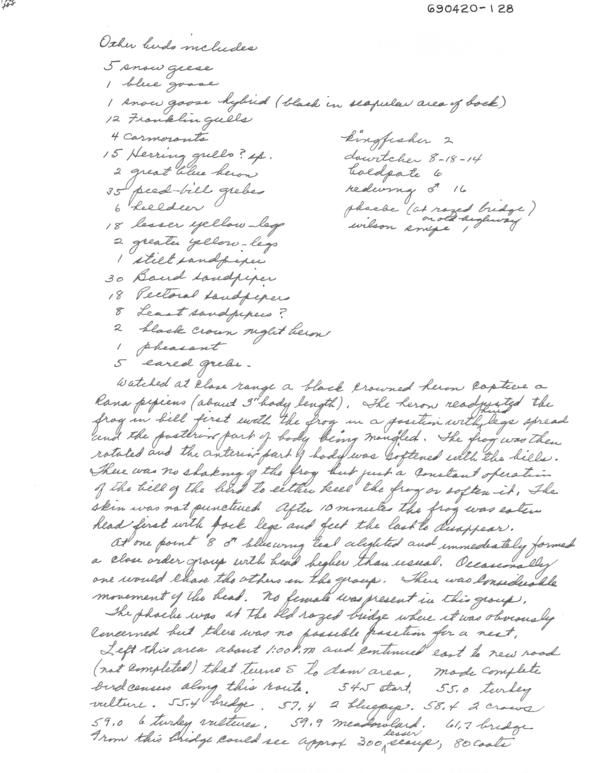 690420-128
Other birds includes
5 snow geese
1 blue goose
1 snow goose hybrid (black in scapular area of back)
12 Franklin gulls
4 Cormorants
15 Herring gulls? sp.
2 great blue heron
35 pied-bill grebes
6 killdeer
18 lesser yellow-legs
2 greater yellow-legs
1 stilt sandpiper
30 Baird sandpiper
18 Pectoral sandpipers
8 Least sandpipers?
2 black crown night heron
1 pheasant
5 eared grebe.
kingfisher 2
dowitcher 8-18-14
baldpate 6
redwing ♂ 16
phoebe (at razed bridge)
on old highway
wilson snipe 1
Watched at close range a black crowned heron captive a
Rana pipiens (about 3" body length). The heron readjusted the
frog in bill first with the frog in a position with hind legs spread
and the posterior part of body being mangled. The frog was then
rotated and the anterior part of body was softened with the bills.
There was no shaking of the frog but just a constant operation
of the bill of the bird to either kill the frog or soften it. The
skin was not punctured. After 10 minutes the frog was eaten
head first with back legs and feet the last to disappear.
At one point 8 ♂ bluewing teal alighted and immediately formed
a close order group with head higher than usual. Occasionally
one would chase the others in the group. There was considerable
movement of the head. No female was present in this group.
The phoebe was at the old razed bridge where it was obviously
concerned but there was no possible position for a nest.
Left this area about 1:00 P.M and continued east to new road
(not completed) that turns S to dam area, made complete
bird census along this route. 54.5 start. 55.0 turkey
vulture. 55.4 bridge. 57.4 2 bluejays. 58.4 2 crows
59.0 6 turkey vultures. 59.9 meadowlark. 61.7 bridge
From this bridge could see approx 300 lesser scaup, 80 coots